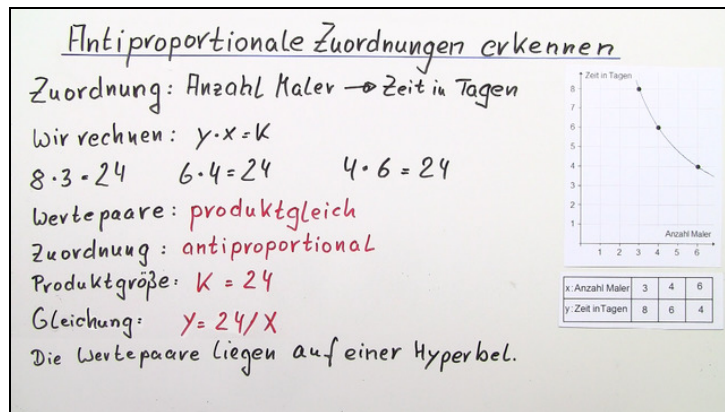 Antiproportionale Zuordnungen erkennen
Zuordnung: Anzahl Maler → Zeit in Tagen
Wir rechnen: y·x=K
8·3=24 6·4=24 4·6=24
Wertepaare: produktgleich
Zuordnung: antiproportional
Produktgröße: K = 24
Gleichung: y=24/x
Die Wertepaare liegen auf einer Hyperbel.
Zeit in Tagen
8
7
6
5
4
3
2
1
Anzahl Maler
1 2 3 4 5 6
x: Anzahl Maler 3 4 6
y: Zeit in Tagen 8 6 4